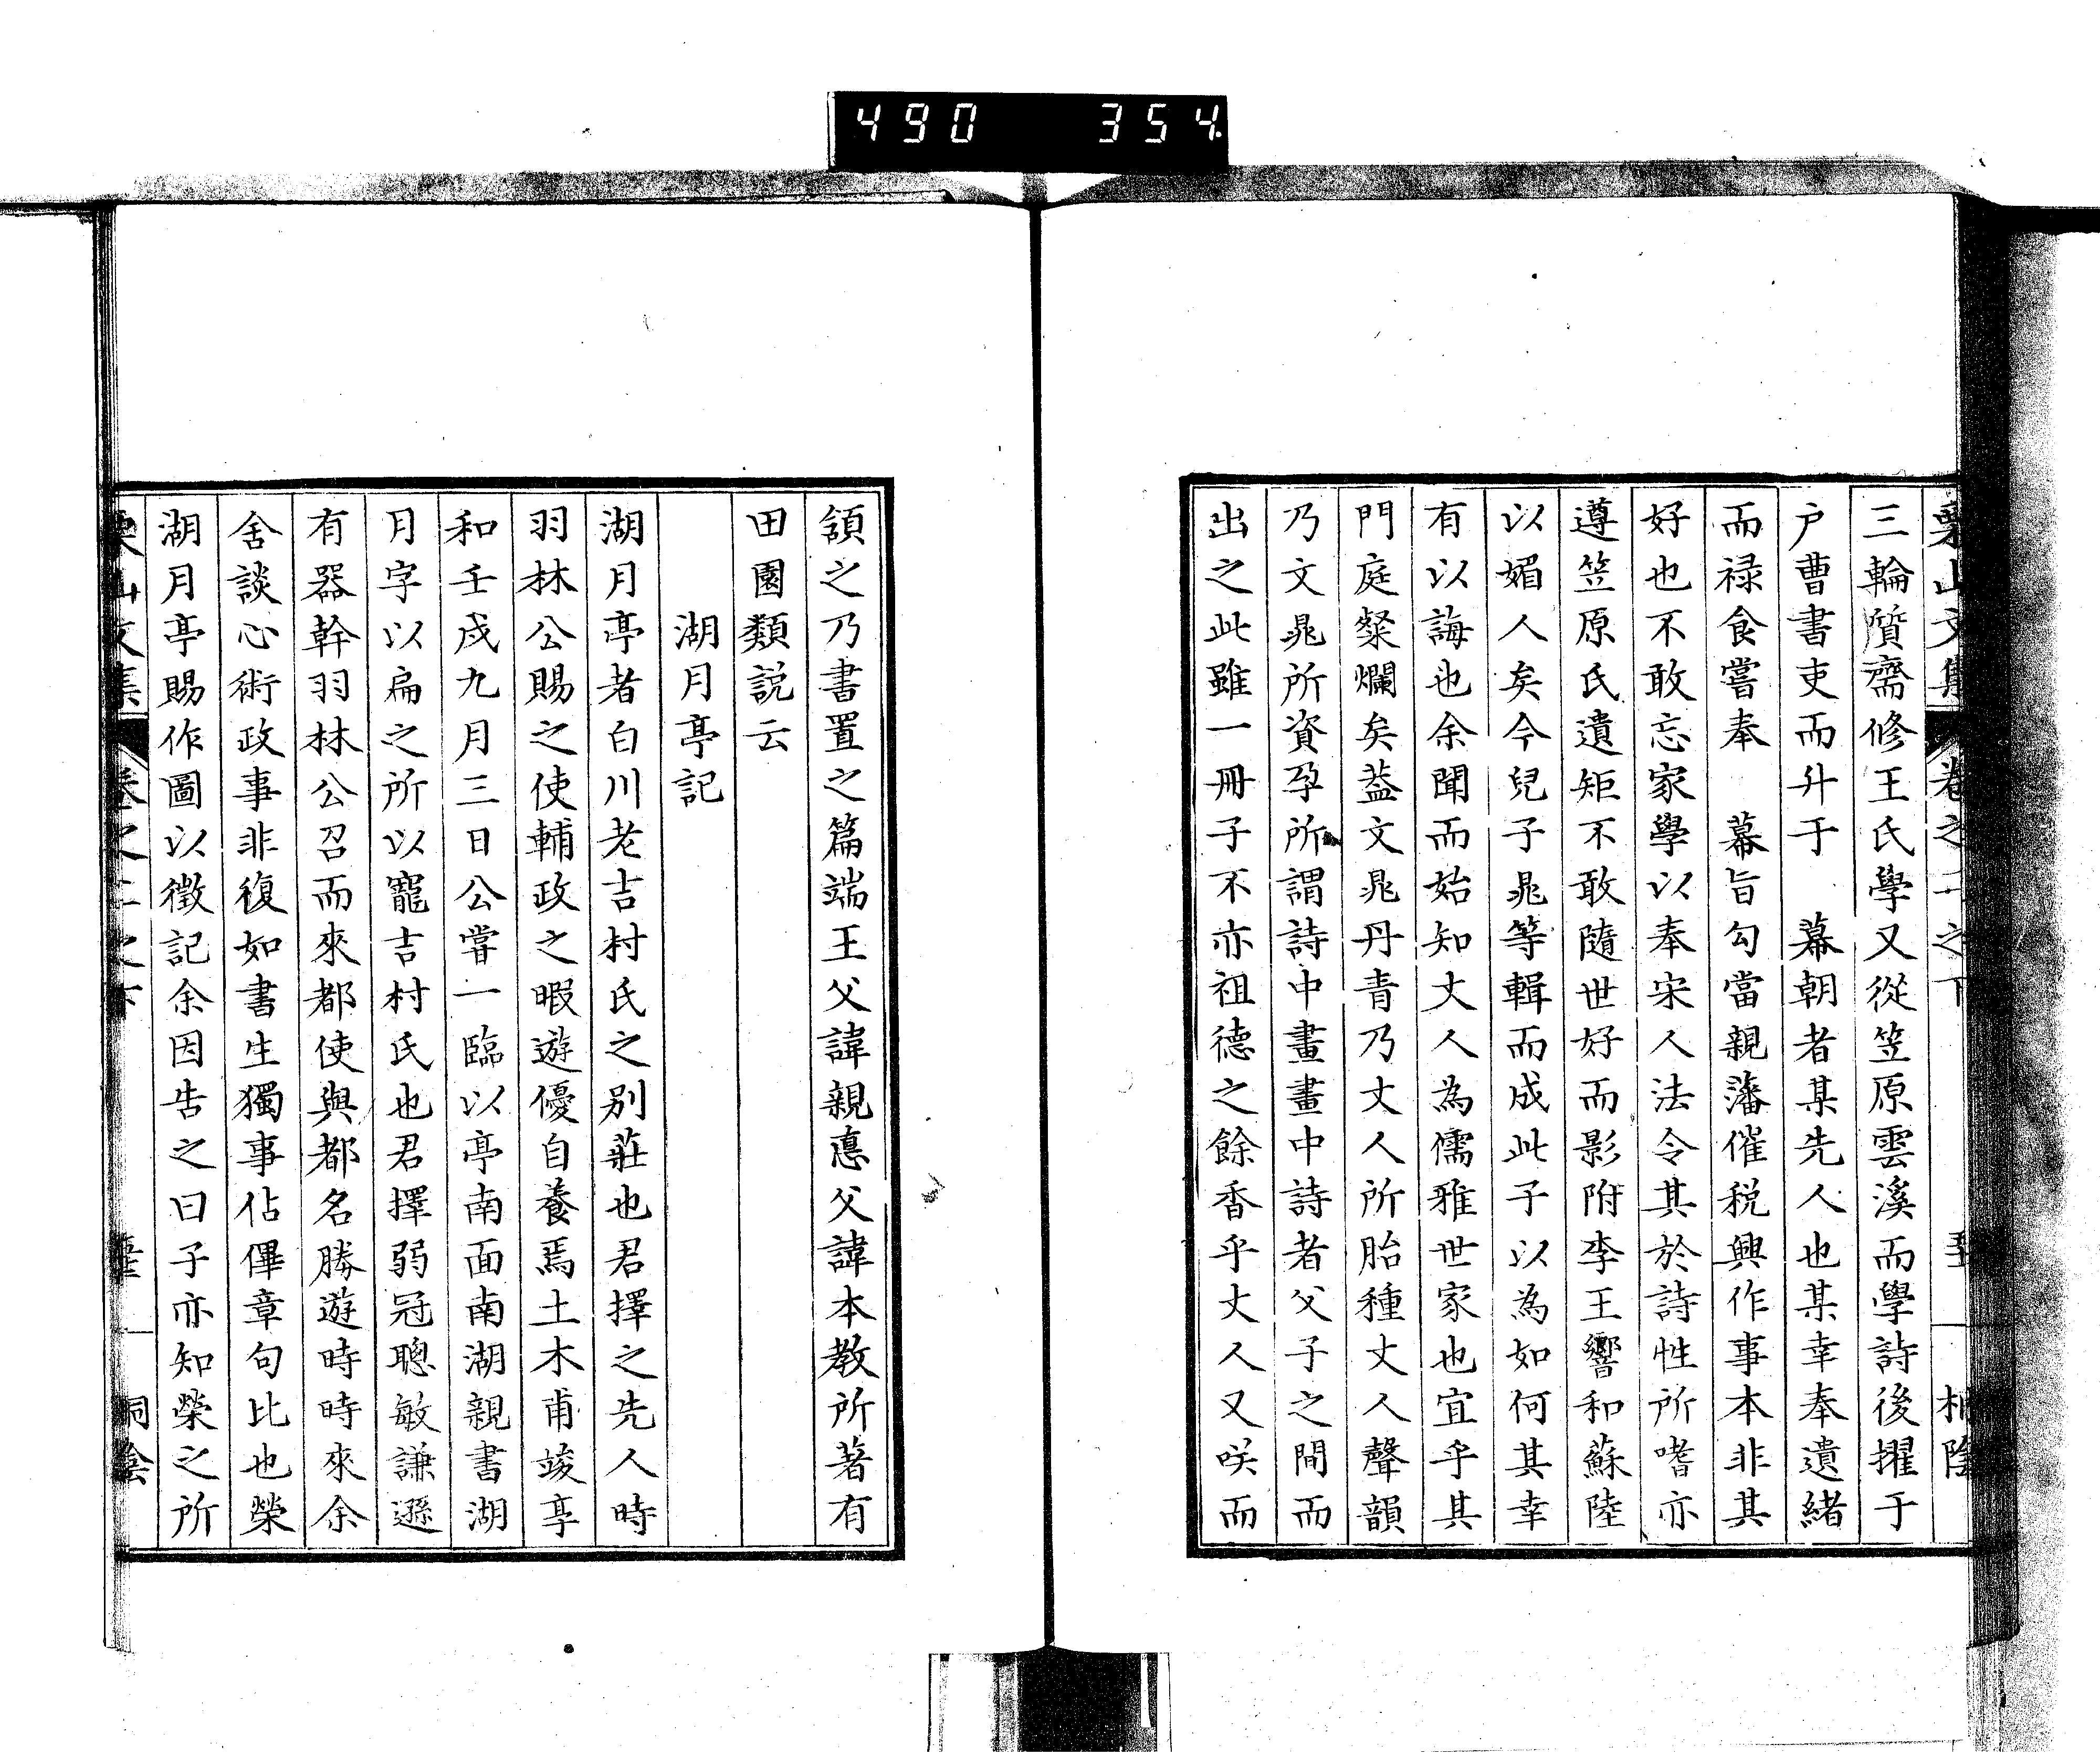 490 354
三輪質齋修王氏學又從笠原雲溪而學詩後擢于
戶曹書吏而升于 幕朝者某先人也某幸奉遺緒
而祿食嘗奉 幕旨勾當親藩催税興作事本非其
好也不敢忘家學以奉宋人法令其於詩性所嗜亦
遵笠原氏遺矩不敢隨世好而影附李王響和蘇陸
以媚人矣今兒子晁等輯而成此子以為如何其幸
有以誨也余聞而始知丈人為儒雅世家也宜乎其
門庭粲爛矣葢文晁丹青乃丈人所胎種丈人聲韻
乃文晁所資孕所謂詩中畫畫中詩者父子之間而
出之此雖一冊子不亦祖德之餘香乎丈人又咲而
頷之乃書置之篇端王父諱親憙父諱本教所著有
田園類説云
湖月亭記
湖月亭者白川老吉村氏之別莊也君擇之先人時
羽林公賜之使輔政之暇遊優自養焉土木甫竣享
和壬戌九月三日公嘗一臨以亭南面南湖親書湖
月字以扁之所以寵吉村氏也君擇弱冠聰敏謙遜
有器幹羽林公召而來都使與都名勝遊時時來余
舍談心術政事非復如書生獨事佔傳章句比也榮
湖月亭賜作圖以徵記余因告之曰子亦知榮之所